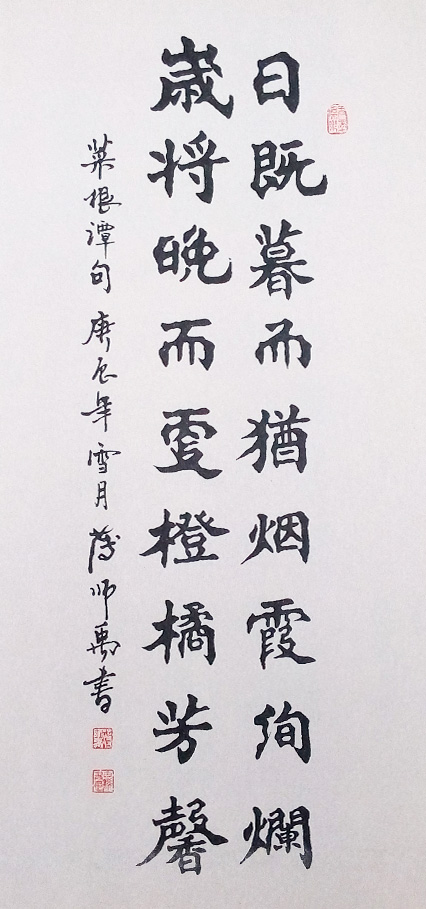 日既暮而猶烟霞絢爛
歳将晚而更橙橘芳馨
菜根譚句 庚辰年雪月 薄师禹書